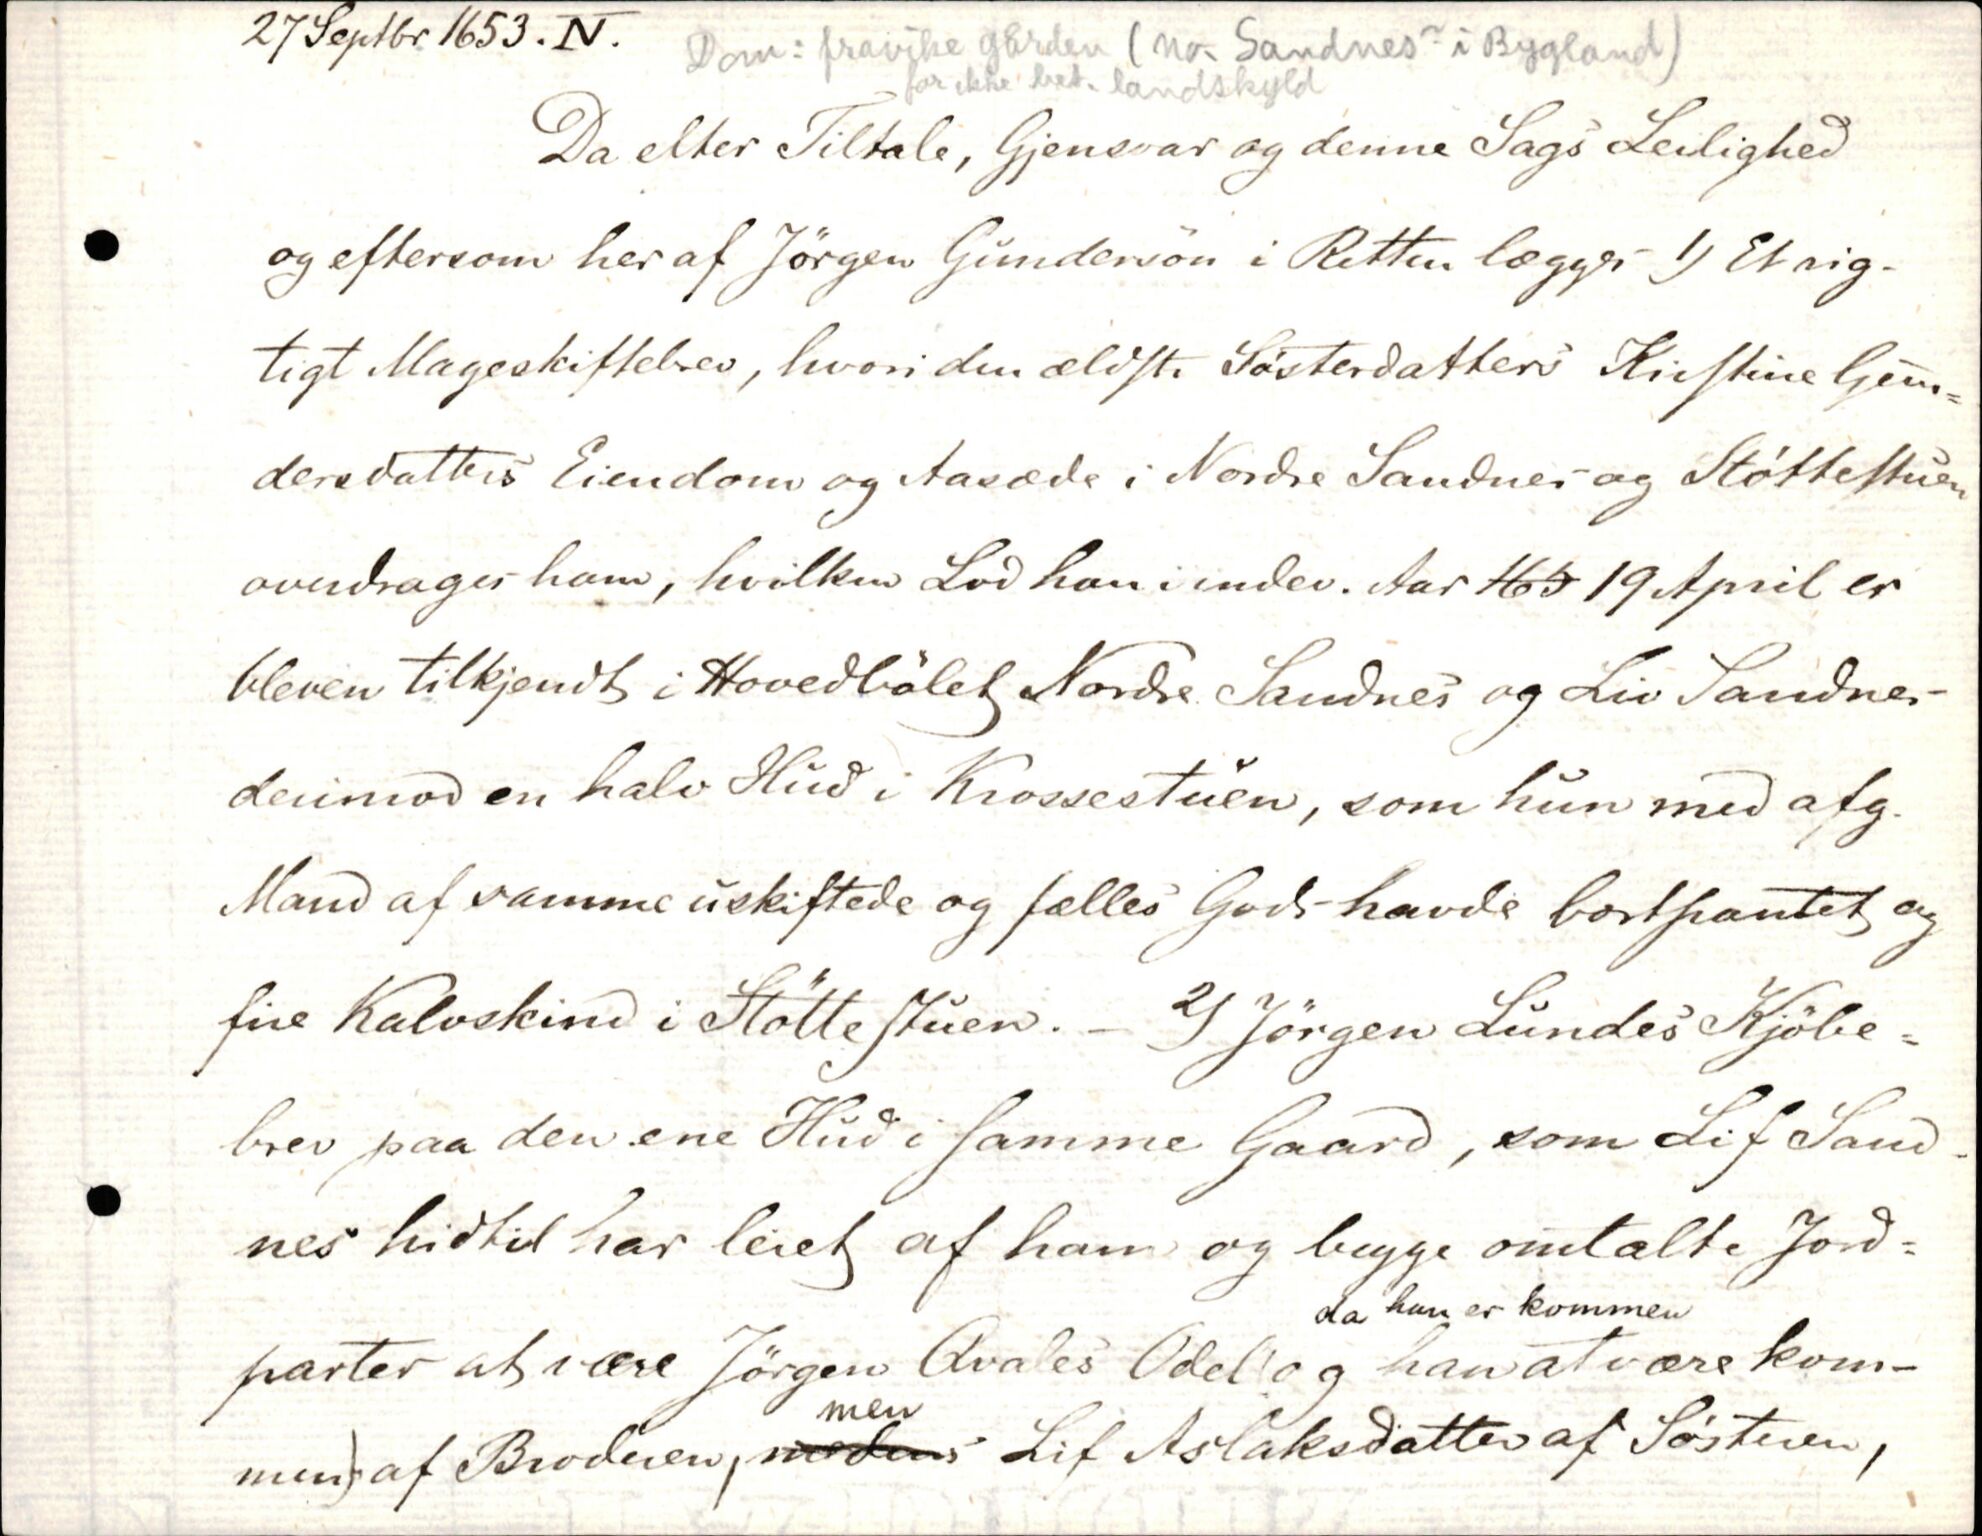 27 Septbr 1653. N.
Dom: fravike gården (No. Sandnes i Bygland)
for ikke bet. landskyld
Da efter Tiltale, Gjensvar og denne Sags Leilighed
og eftersom her af Jörgen Gundersön i Retten lægges 1) Et rig-
tigt Mageskiftebrev, hvori den ældste Søsterdatters Kirstine Gun=
dersdatters Eiendom og Aasæde i Nordre Sandnes og Støttestuen
overdrages ham, hvilken Lod han i indev. Aar 165 19 April er
bleven tilkjendt i Hovedbölet Nordre Sandnes og Liv Sandnes
derimod en halv Hud i Krossestuen, som hun med afg.
Mand af samme uskiftede og fælles Gods havde bortpantet og
fire Kalvskind i Støttestuen. – 2) Jörgen Lundes Kjöbe=
brev paa den ene Hud i samme Gaard, som Lif Sand-
nes hidtil har leiet af ham og begge omtalte Jord=
da han er kommen
parter at være Jörgen Qvales Odel og han at være kom-
men
men) af Broderen, medens Lif Aslaksdatter af Søsteren,